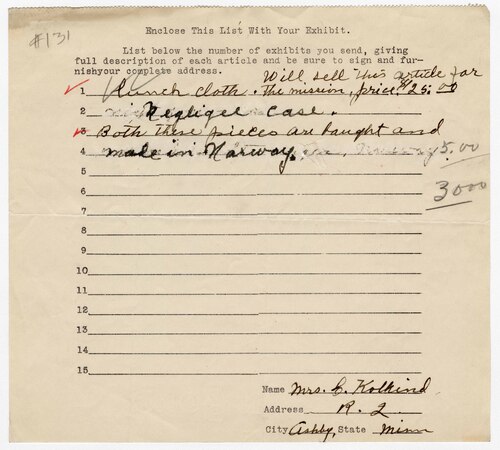 #131
Enclose This List With Your Exhibit.
List below the number of exhibits you send, giving
full description of each article and be sure to sign and fur-
nishyour complete address.
Will sell this article for
1 Lunch cloth. The mission, price. $25.00
2 Negligee case.
3 Both these pieces are bought and
4 made in Norway. 5.00
5
30 00
6
7
8
9
10
11
12
13
14
15
Name Mrs. C. Kolkind
Address R. 2
City Ashby, State Minn